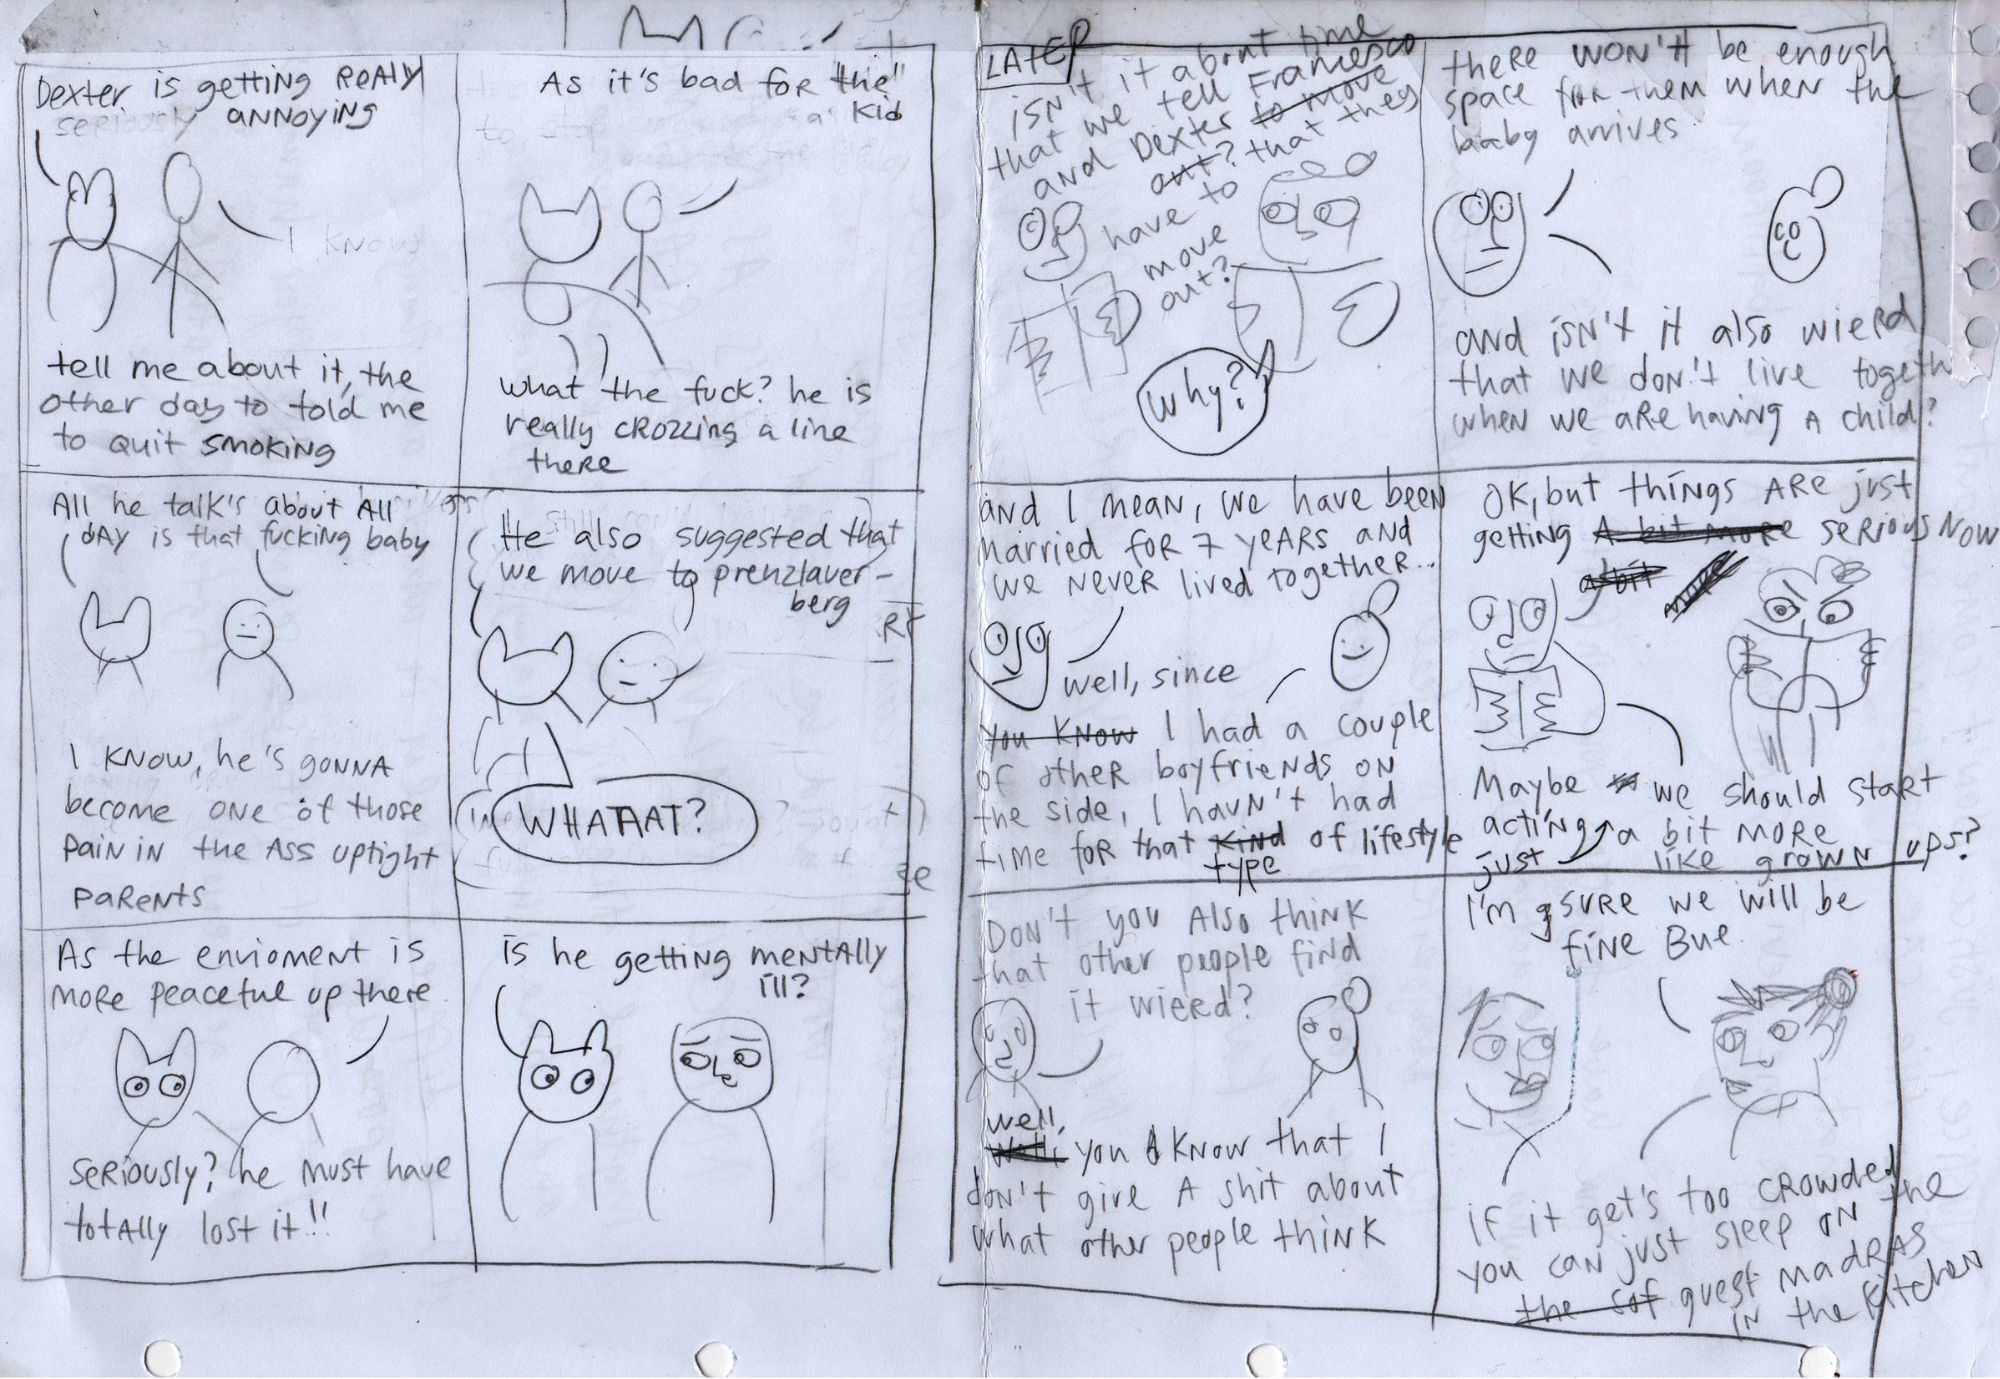 Dexter is getting REALLY
SERIOUSLY ANNOYING
I KNOW
tell me about it, the
other day to told me
to quit SMOKING
As it's bad for "the"
a KID
what the fuck? he is
really cROZZing a line
theRe
All he talk's about All
dAy is that fucking baby
I KNOW, he's gonna
become ONE of those
PAIN IN the ASS uptight
PARENTS
He also suggested that
we move to prenzlauer-
berg
WHATAAT?
As the envioment is
MORE peaceful up there
SERIOUSLY? he must have
totAlly lost it!!
is he getting mentAlly
ill?
LATER
isN't it about time
that we tell Francesco
and Dexter to move
out? that they
have to
move
out?
why?
there WON't be enough
space foR them when the
baby arrives
and isn't it also wieRd
that we don't live togeth
when we aRe having A child?
and I mean, we have been
married foR 7 yeARs and
we NEVER lived together...
well, since
you KNOW I had a couple
of otheR boyfriends ON
the side, I havN't had
time foR that KiNd of lifestyle
type
OK, but things ARe just
getting A bit MORE SERIOUS NOW
a bit
MORE
Maybe we should start
acting a bit MORE
just like gRown ups?
Don't you Also think
that other people find
it wieRd?
well,
you KNow that I
don't give A shit about
what other people think
I'm SURE we will be
fiNe Bue.
if it get's too CROWDED
you caN just sleep oN the
the sof guest MADRAS
iN the Kitchen